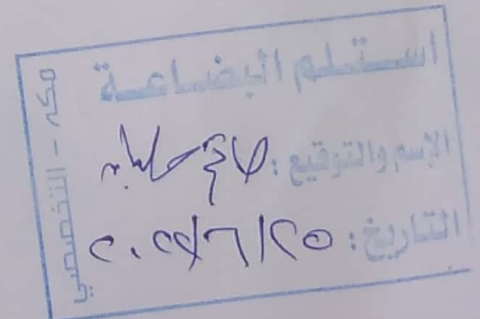 استلم البضاعة
الإسم والتوقيع :
التاريخ : ٢٥/٦/٢٠٢٤
مكه - التخصصي